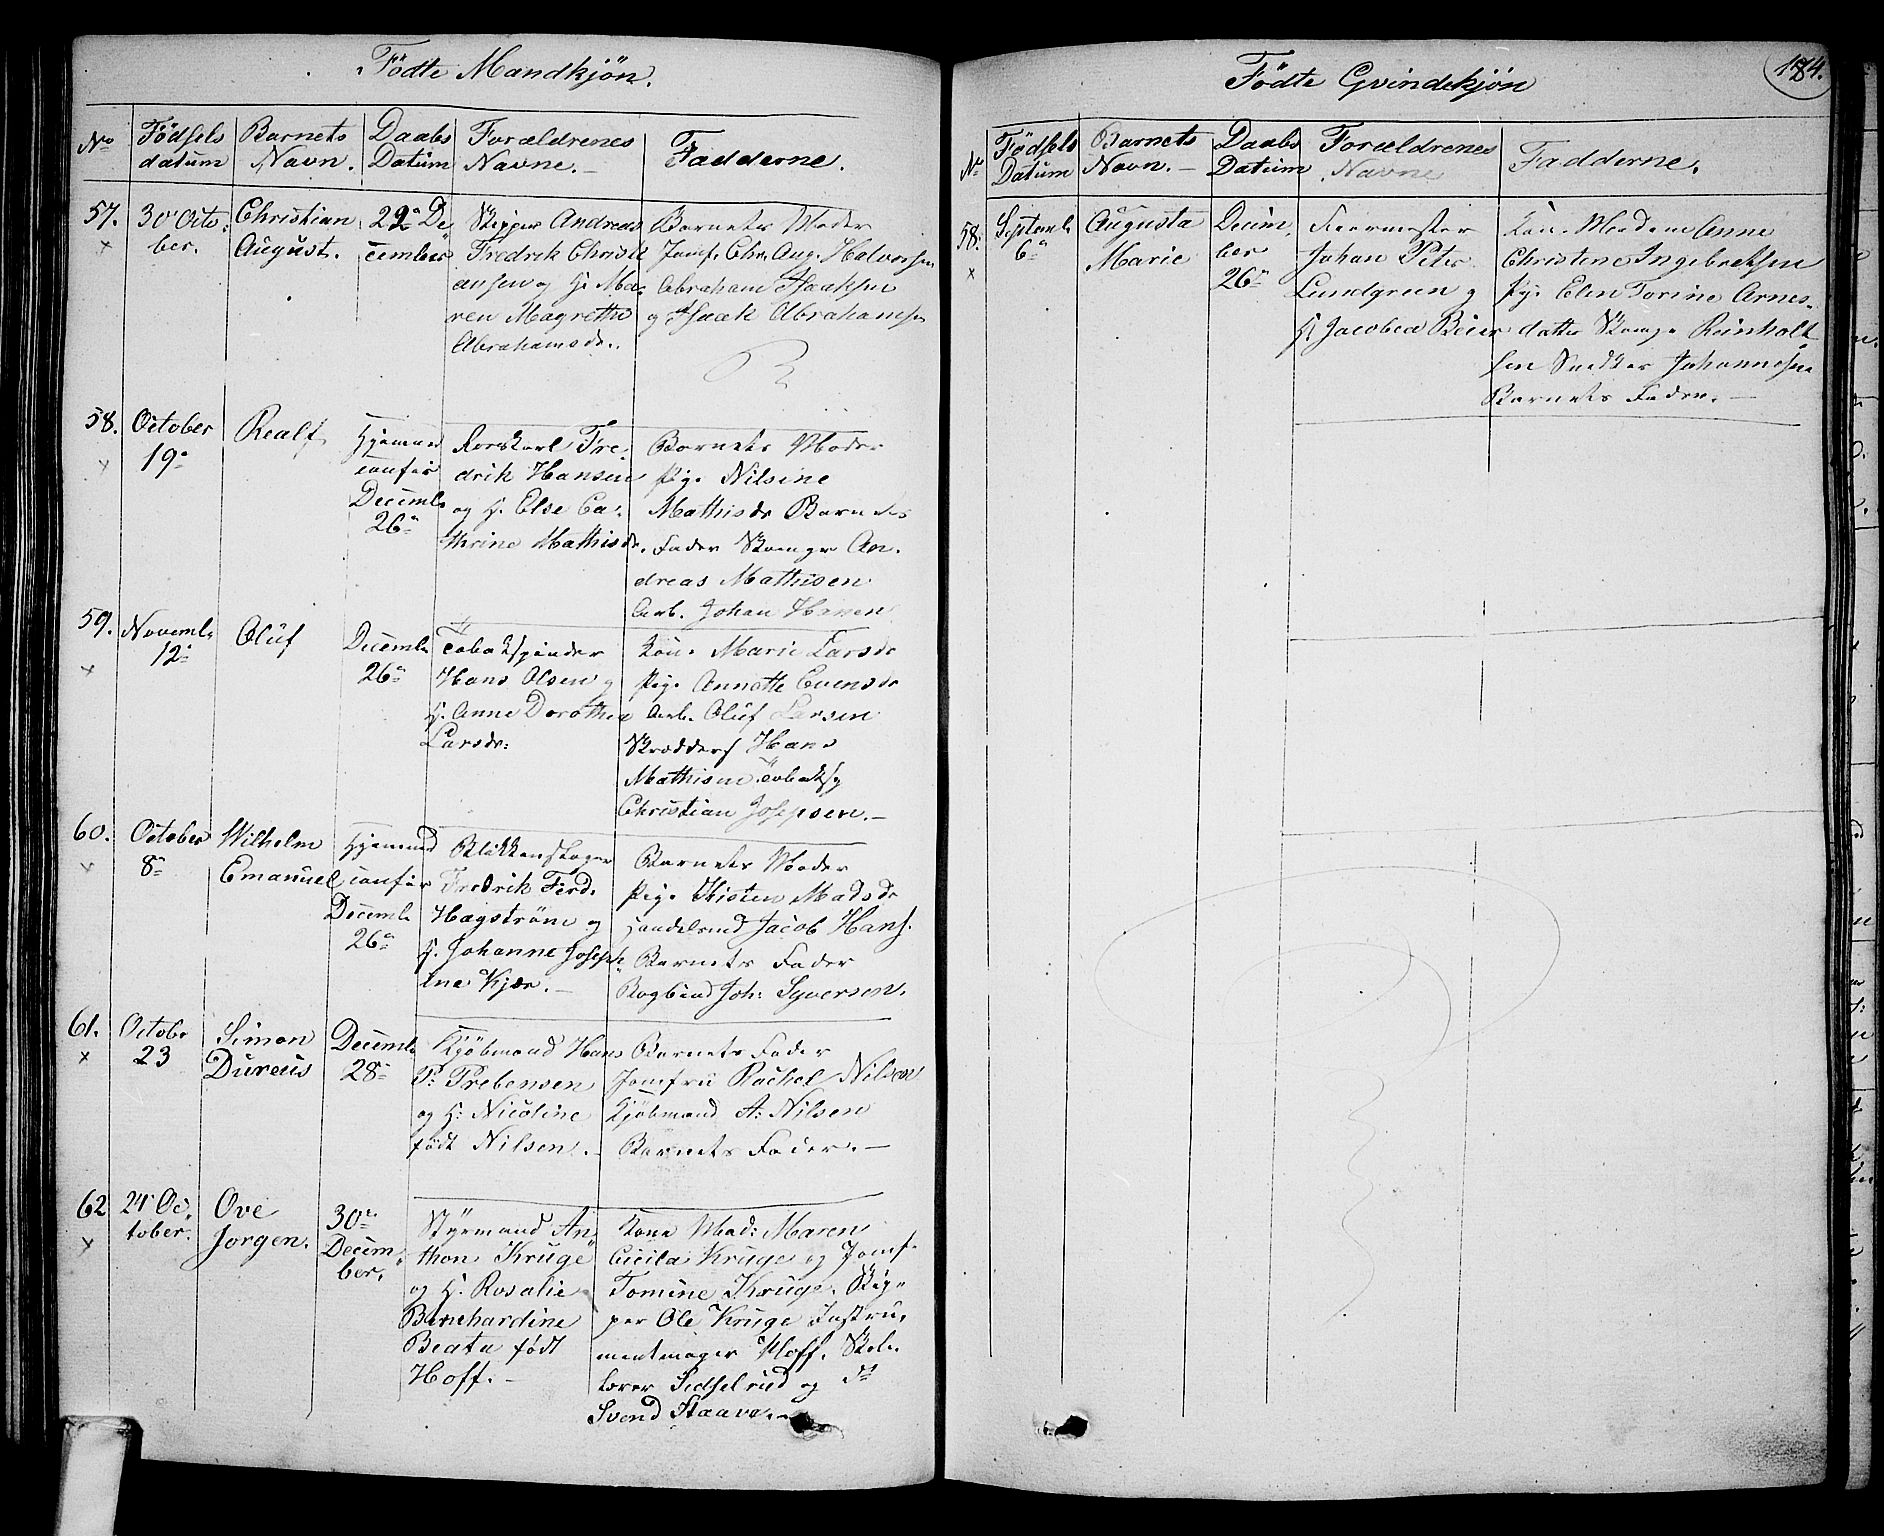 Födte Mandkjön.
No
Födsels datum
Barnets Navn.
Daabs Datum
Forældrenes Navne.
Fadderne.
57.
30 Octo-
ber.
Christian
August.
22 De
cember
Skipper Andreas
Fredrik Christi
ansen og H. Ma-
ren Magrethe
Abrahamsdr.
Barnets Moder
Jomf. Chr. Aug. Halvorsen
Abraham Isaksen
og Isaak Abrahamsen
58.
October
19
Realf
Hjemmed
confir
Decemb
26
Fredrik Hansen
og H. Else Ca-
thrine Mathisdr.
Barnets Moder
Pige Nilsine
Mathisdr Barnets
Fader Skomgr An-
dreas Mathisen
Arb. Johan Hansen
59.
Novemb
12
Oluf
Decemb
26
Tobakspinder
Hans Olsen og
H. Anne Dorothea
Larsdr:
Kone Marie Larsdr
Pige Annette Evensdr
Arb. Oluf Larsen
Skrædders Hans
Mathisen Tobaksp
Christian Josepsen.
60.
October
8
Wilhelm
Emanuel
Hjemmed
confir
Decemb
26
Blikkenslager
Fredrik Ferd.
Hagström og
H. Johanne Joseph-
ine Kjær.
Barnets Moder
Pige Kisten Madsdr
Handelsmd Jacob Hans.
Barnets Fader
Bogbind Joh: Syversen.
61.
Octobe
23
Simon
Dureus
Decemb
28
Kjöbmand Hans
P: Prebensen
og H: Nicoline
födt Nilsen.
Barnets Fader
Jomfru Rachel Nilsen
Kjöbmand A: Nilsen
Barnets Fader.
62
24 Oc-
tober.
Ove
Jorgen.
30
Decem-
ber.
Styrmand An-
thon Kruge
og H. Rosalie
Bernhardine
Beata födt
Hoff.
Kone Mad: Maren
Cicila Kruge og Jomf.
Tomine Kruge. Skip-
per Ole Kruge Instru-
mentmager Hoff. Skole-
lærer Sidselrud og St
Svend Staava.
Födte Qvindekjön
184.
No
Födsels Datum
Barnets Navn.
Daabs Datum
Forældrenes Navne
Fadderne.
58.
Septemb
6
Augusta
Marie
Decem
ber
26
Feiermester
Johan Peter
Lundgreen og
H Jacobea Beier
Kone Madme Anne
Christine Ingebretsen
Pige Elen Torine Arnes-
datter Skomgr Reinholt
sen Snedker Johannesen
Barnets Fader.